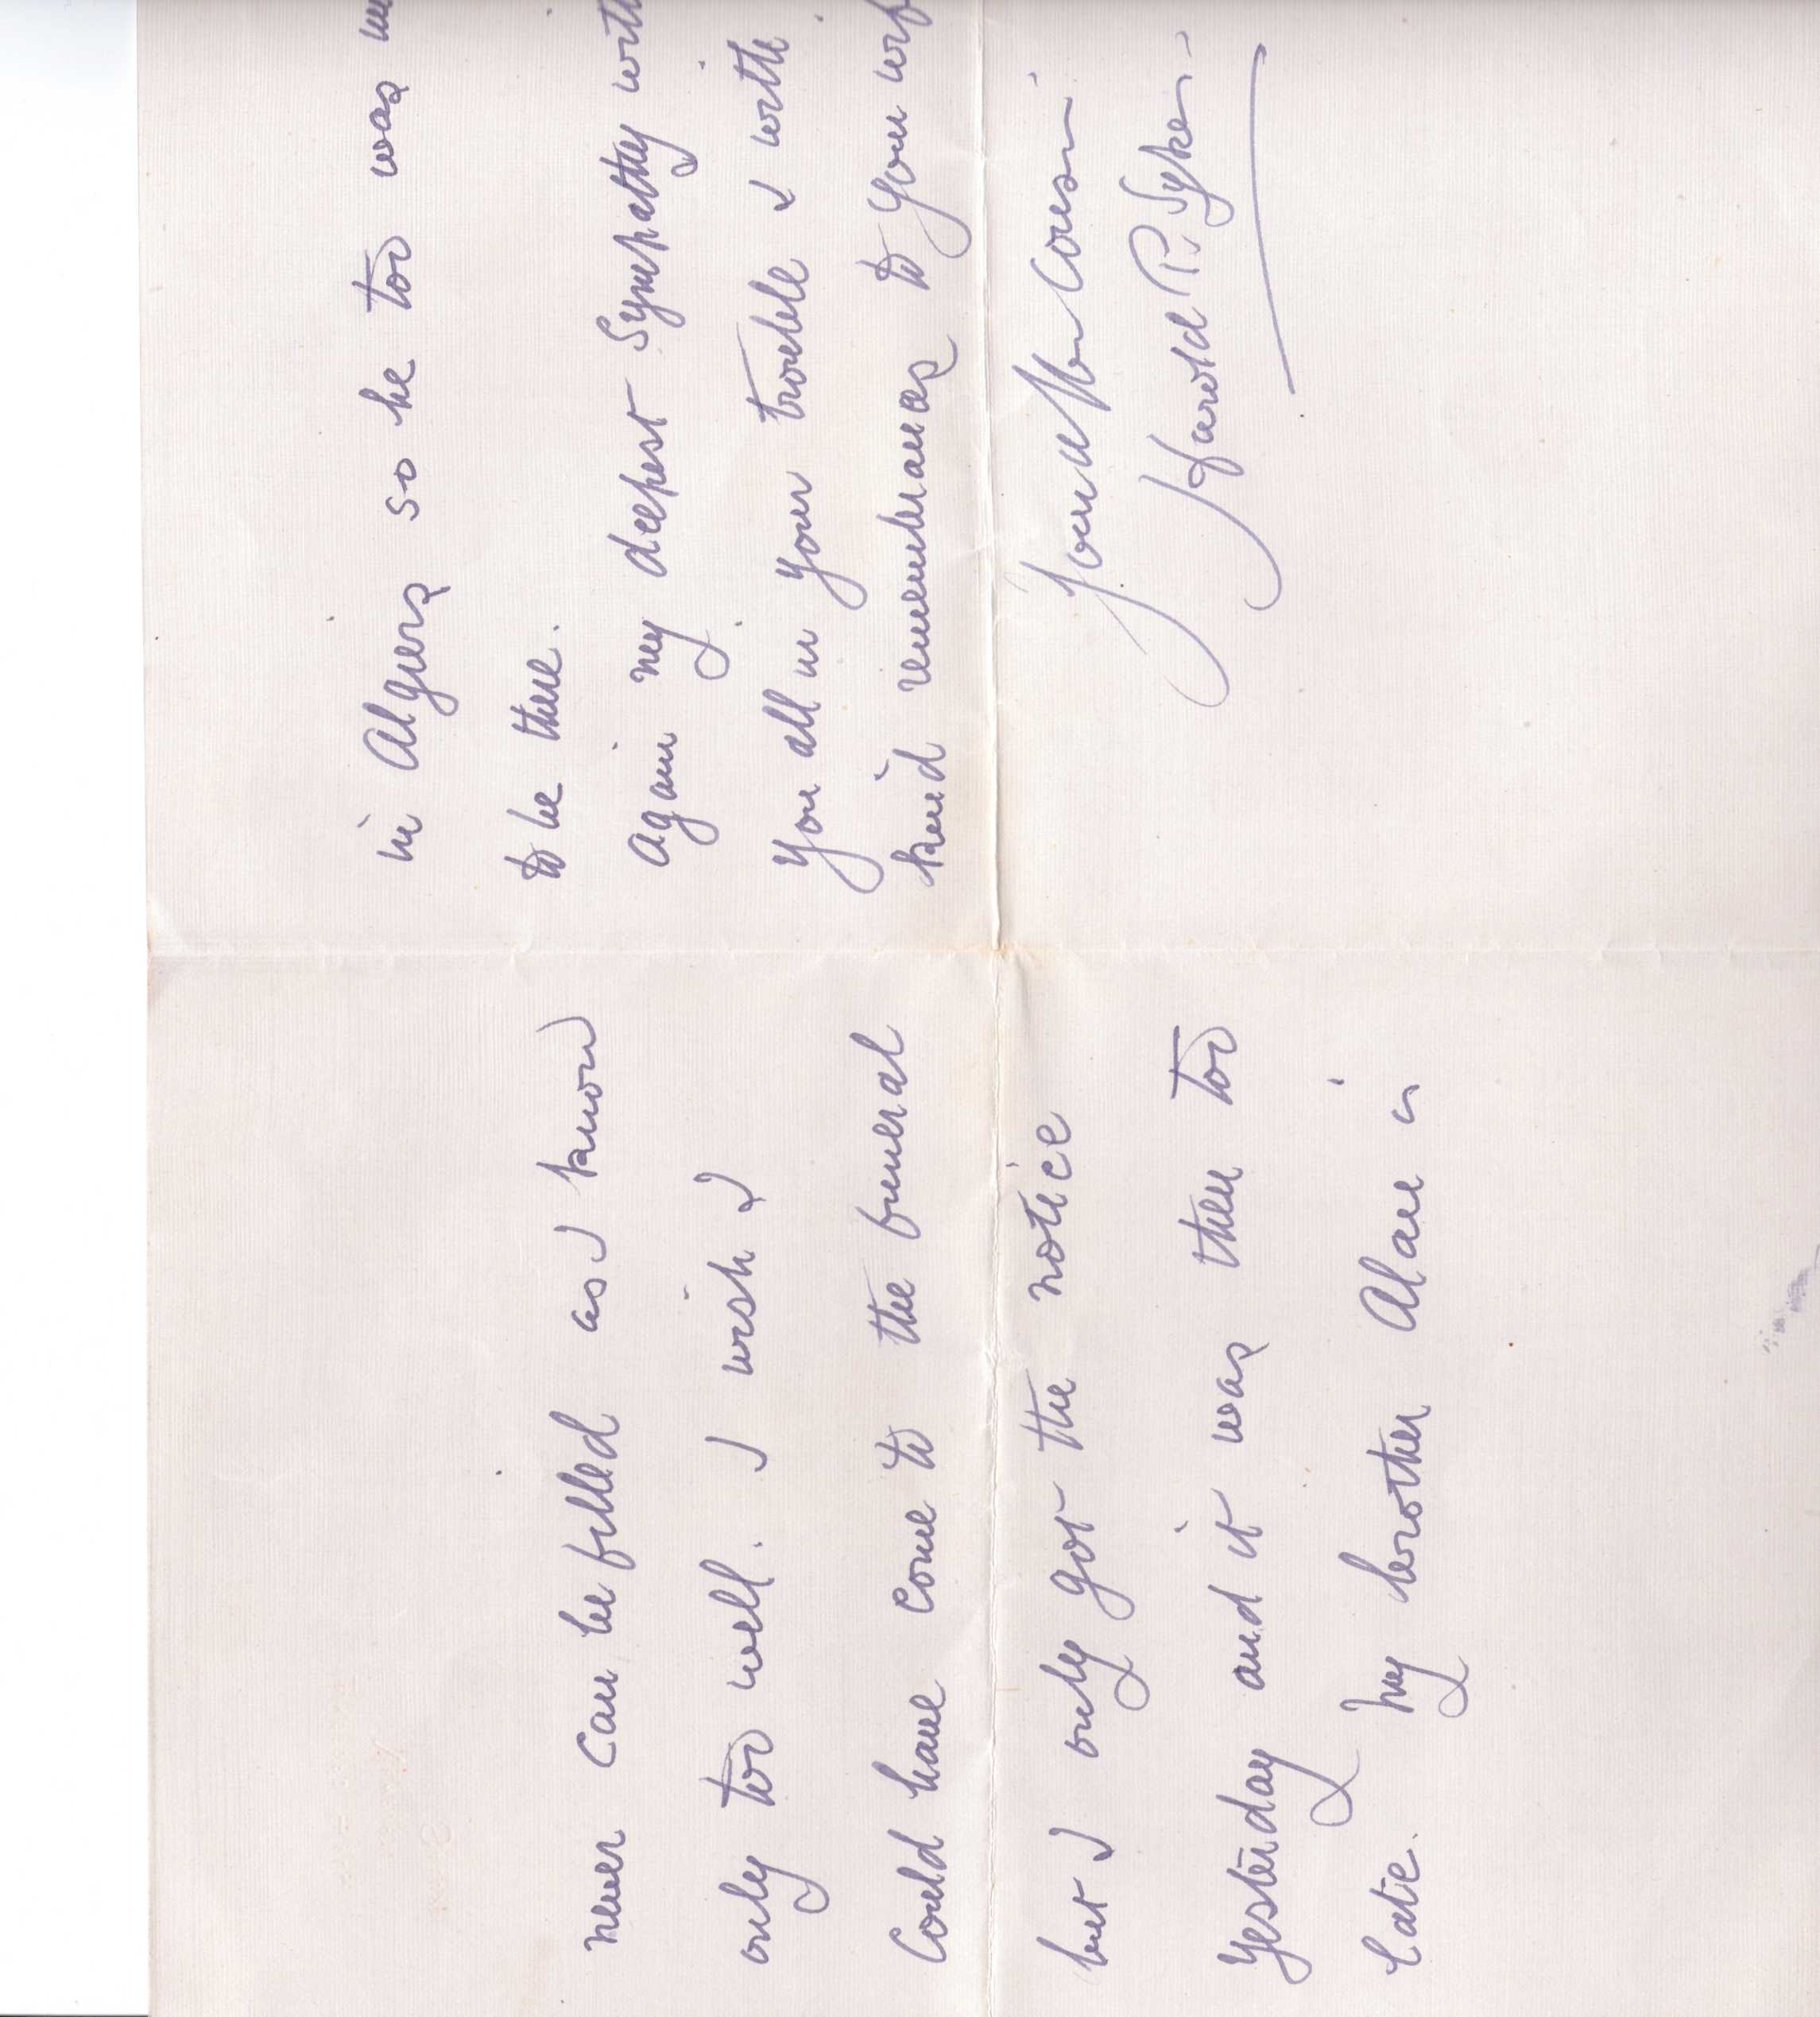 never can be filled as I know
only too well. I wish I
could have come to the funeral
but I only got the notice
yesterday and it was then too
late. My brother Alan is
in Algiers so he too was
to be there.
Again my deepest sympathy with
you all in your trouble & with
kind remembrances to you
Cousin
Harold P. Sykes.